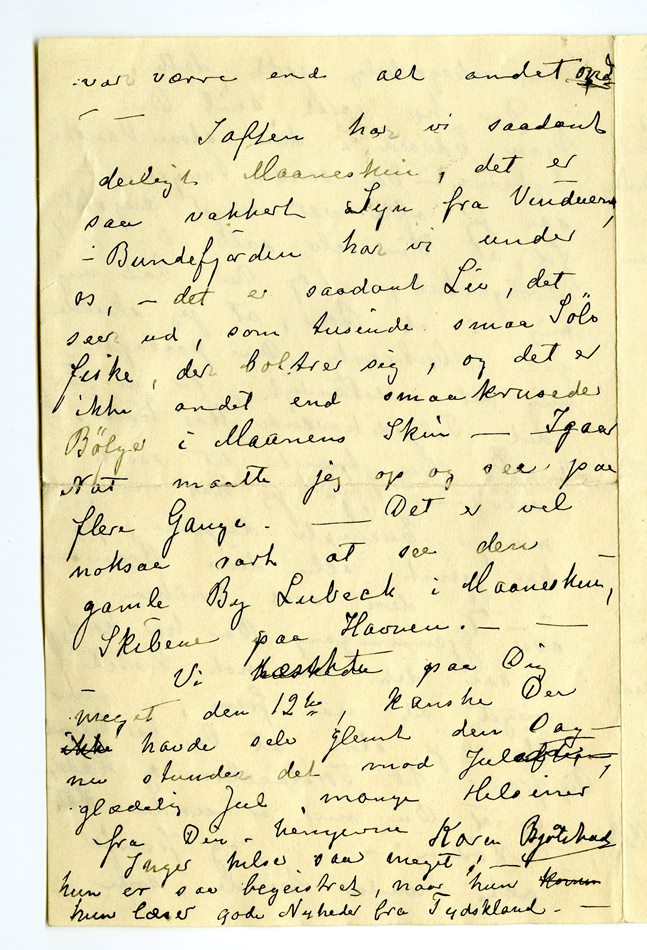 var værre end alt andet ond
— — Iaften har vi saadant
deiligt Maaneskin, det er
saa vakkert Syn fra Vinduerne,
– Bundefjörden har vi under
os, – det er saadant Liv, det
seer ud, som tusinde smaa Sölv
fiske, der boltrer sig, og det er
ikke andet end smaa krusede
Bölger i Maanens Skin — Igaar
Nat maatte jeg op og see paa
flere Gange. — Det er vel
noksaa rart at see den
gamle By Lübeck i Maaneskin,
Skibene paa Havnen. — —
Vi tænkte paa Dig
meget den 12te, kanske Der
ikke havde selv glemt den Dag —
nu stunder det mod Juleaften,
glædelig Jul mange Hilsener
fra Din hengivne Karen Bjølstad
Inger hilser saa meget,
hun er saa begeistret, naar hun
hun læser gode Nyheder fra Tydskland. —